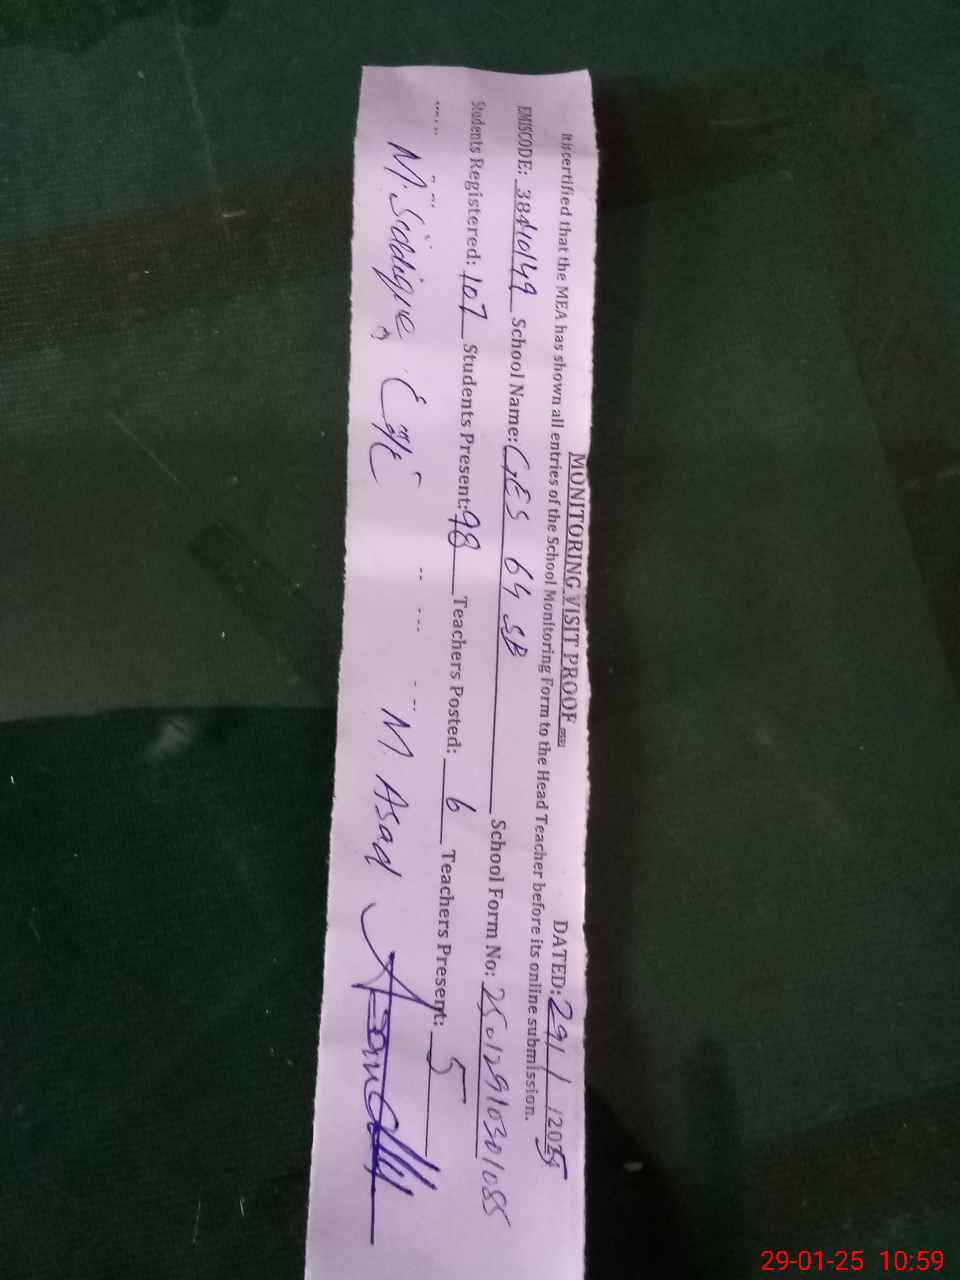 MONITORING VISIT PROOF
DATED: 29/1/2025
It is certified that the MEA has shown all entries of the School Monitoring Form to the Head Teacher before its online submission.
EMISCODE: 38410149 School Name: GES 64 SB School Form No: 25012910301085
Students Registered: 107 Students Present: 98 Teachers Posted: 6 Teachers Present: 5
M. Siddique M. Asad
29-01-25 10:59